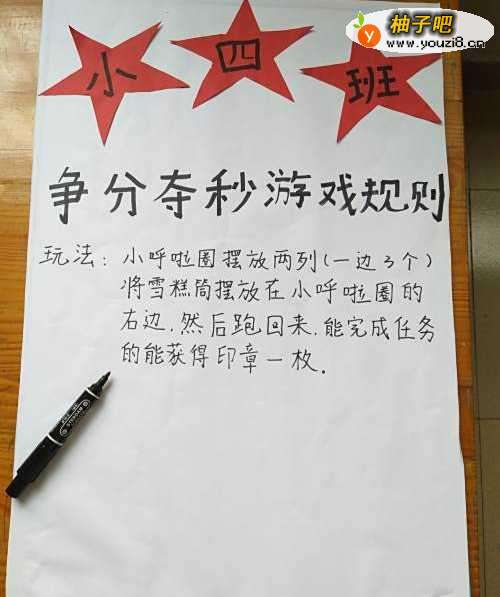 柚子吧
www.youzi8.cn
小四班
争分夺秒游戏规则
玩法：小呼啦圈摆放两列(一边3个)
将雪糕筒摆放在小呼啦圈的
右边.然后跑回来.能完成任务
的能获得印章一枚.